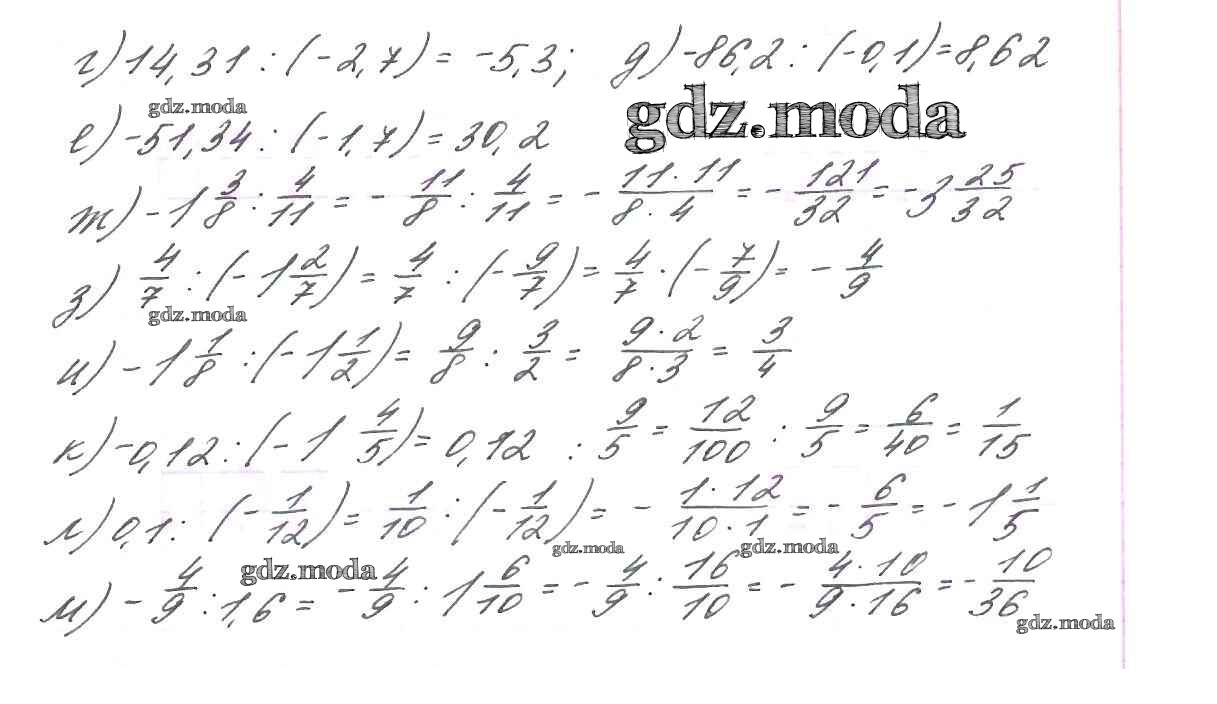 г) 14,31 : (-2,7) = -5,3; д) -86,2 : (-0,1) = 8,62
gdz.moda
gdz.moda
е) -51,34 : (-1,7) = 30,2
ж) -1 3/8 : 4/11 = - 11/8 : 4/11 = - 11·11/8·4 = - 121/32 = -3 25/32
з) 4/7 : (-1 2/7) = 4/7 : (- 9/7) = 4/7 · (- 7/9) = - 4/9
gdz.moda
и) -1 1/8 : (-1 1/2) = 9/8 : 3/2 = 9·2/8·3 = 3/4
к) -0,12 : (-1 4/5) = 0,12 : 9/5 = 12/100 : 9/5 = 6/40 = 1/15
л) 0,1 : (- 1/12) = 1/10 : (- 1/12) = - 1·12/10·1 = - 6/5 = -1 1/5
gdz.moda
gdz.moda
gdz.moda
м) - 4/9 : 1,6 = - 4/9 : 1 6/10 = - 4/9 : 16/10 = - 4·10/9·16 = - 10/36
gdz.moda